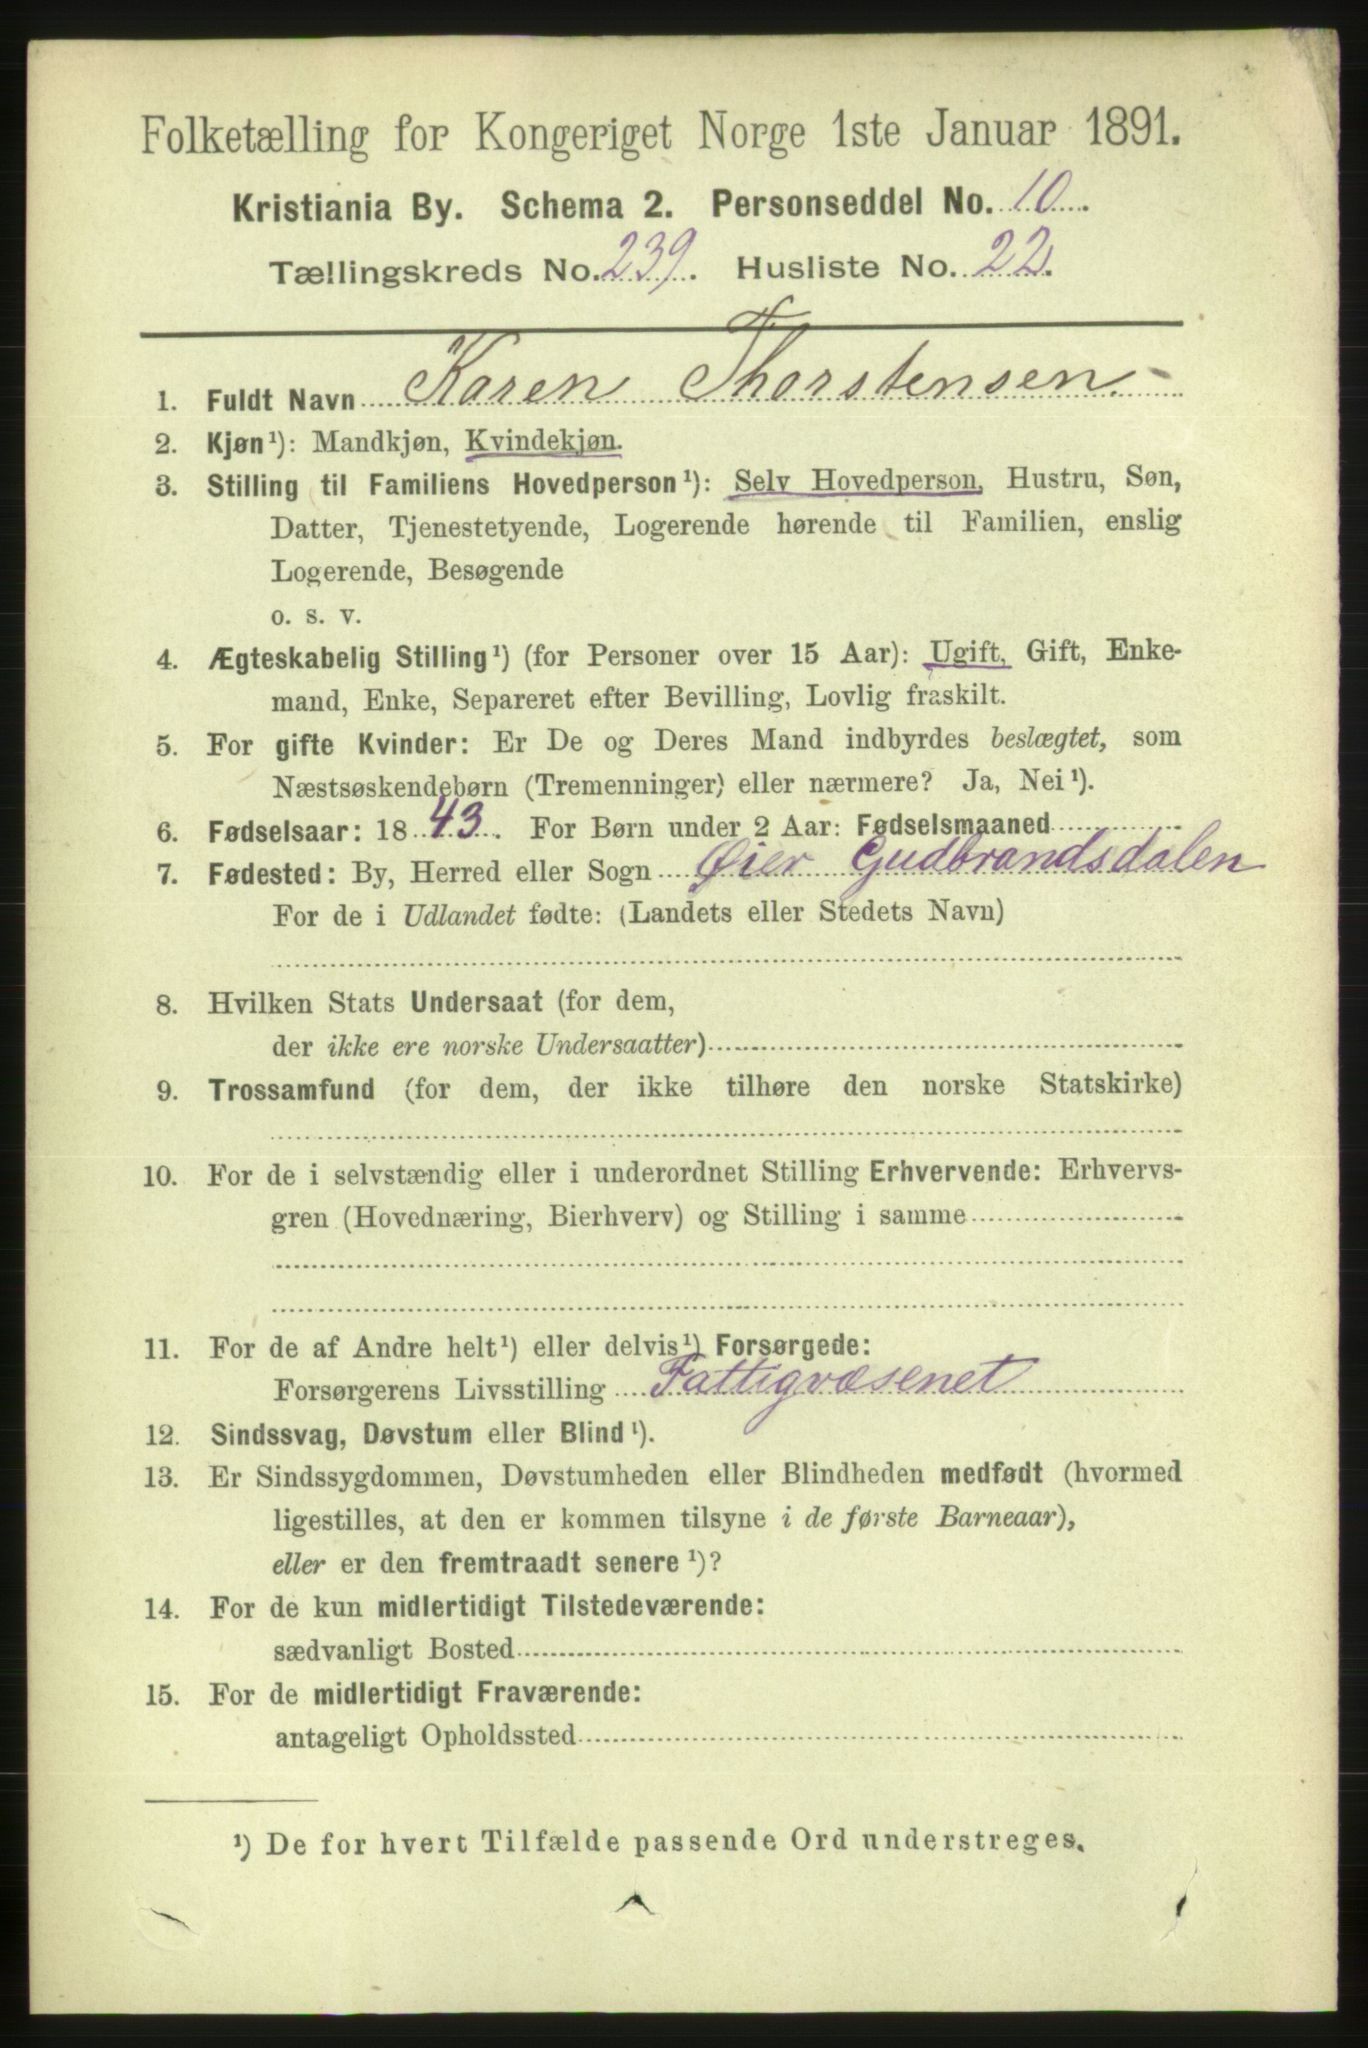 Folketælling for Kongeriget Norge 1ste Januar 1891.
Kristiania By. Schema 2. Personseddel No. 10.
Tællingskreds No. 239. Husliste No. 22.
1. Fuldt Navn Karen Thorstensen.
2. Kjøn¹): Mandkjøn, Kvindekjøn.
3. Stilling til Familiens Hovedperson¹): Selv Hovedperson, Hustru, Søn,
Datter, Tjenestetyende, Logerende hørende til Familien, enslig
Logerende, Besøgende
o. s. v.
4. Ægteskabelig Stilling¹) (for Personer over 15 Aar): Ugift, Gift, Enke-
mand, Enke, Separeret efter Bevilling, Lovlig fraskilt.
5. For gifte Kvinder: Er De og Deres Mand indbyrdes beslægtet, som
Næstsøskendebørn (Tremenninger) eller nærmere? Ja, Nei¹).
6. Fødselsaar: 1843. For Børn under 2 Aar: Fødselsmaaned
7. Fødested: By, Herred eller Sogn Øier Gudbrandsdalen
For de i Udlandet fødte: (Landets eller Stedets Navn)
8. Hvilken Stats Undersaat (for dem,
der ikke ere norske Undersaatter)
9. Trossamfund (for dem, der ikke tilhøre den norske Statskirke)
10. For de i selvstændig eller i underordnet Stilling Erhvervende: Erhvervs-
gren (Hovednæring, Bierhverv) og Stilling i samme
11. For de af Andre helt¹) eller delvis¹) Forsørgede:
Forsørgerens Livsstilling Fattigvæsenet
12. Sindssvag, Døvstum eller Blind¹).
13. Er Sindssygdommen, Døvstumheden eller Blindheden medfødt (hvormed
ligestilles, at den er kommen tilsyne i de første Barneaar),
eller er den fremtraadt senere¹)?
14. For de kun midlertidigt Tilstedeværende:
sædvanligt Bosted
15. For de midlertidigt Fraværende:
antageligt Opholdssted
¹) De for hvert Tilfælde passende Ord understreges.